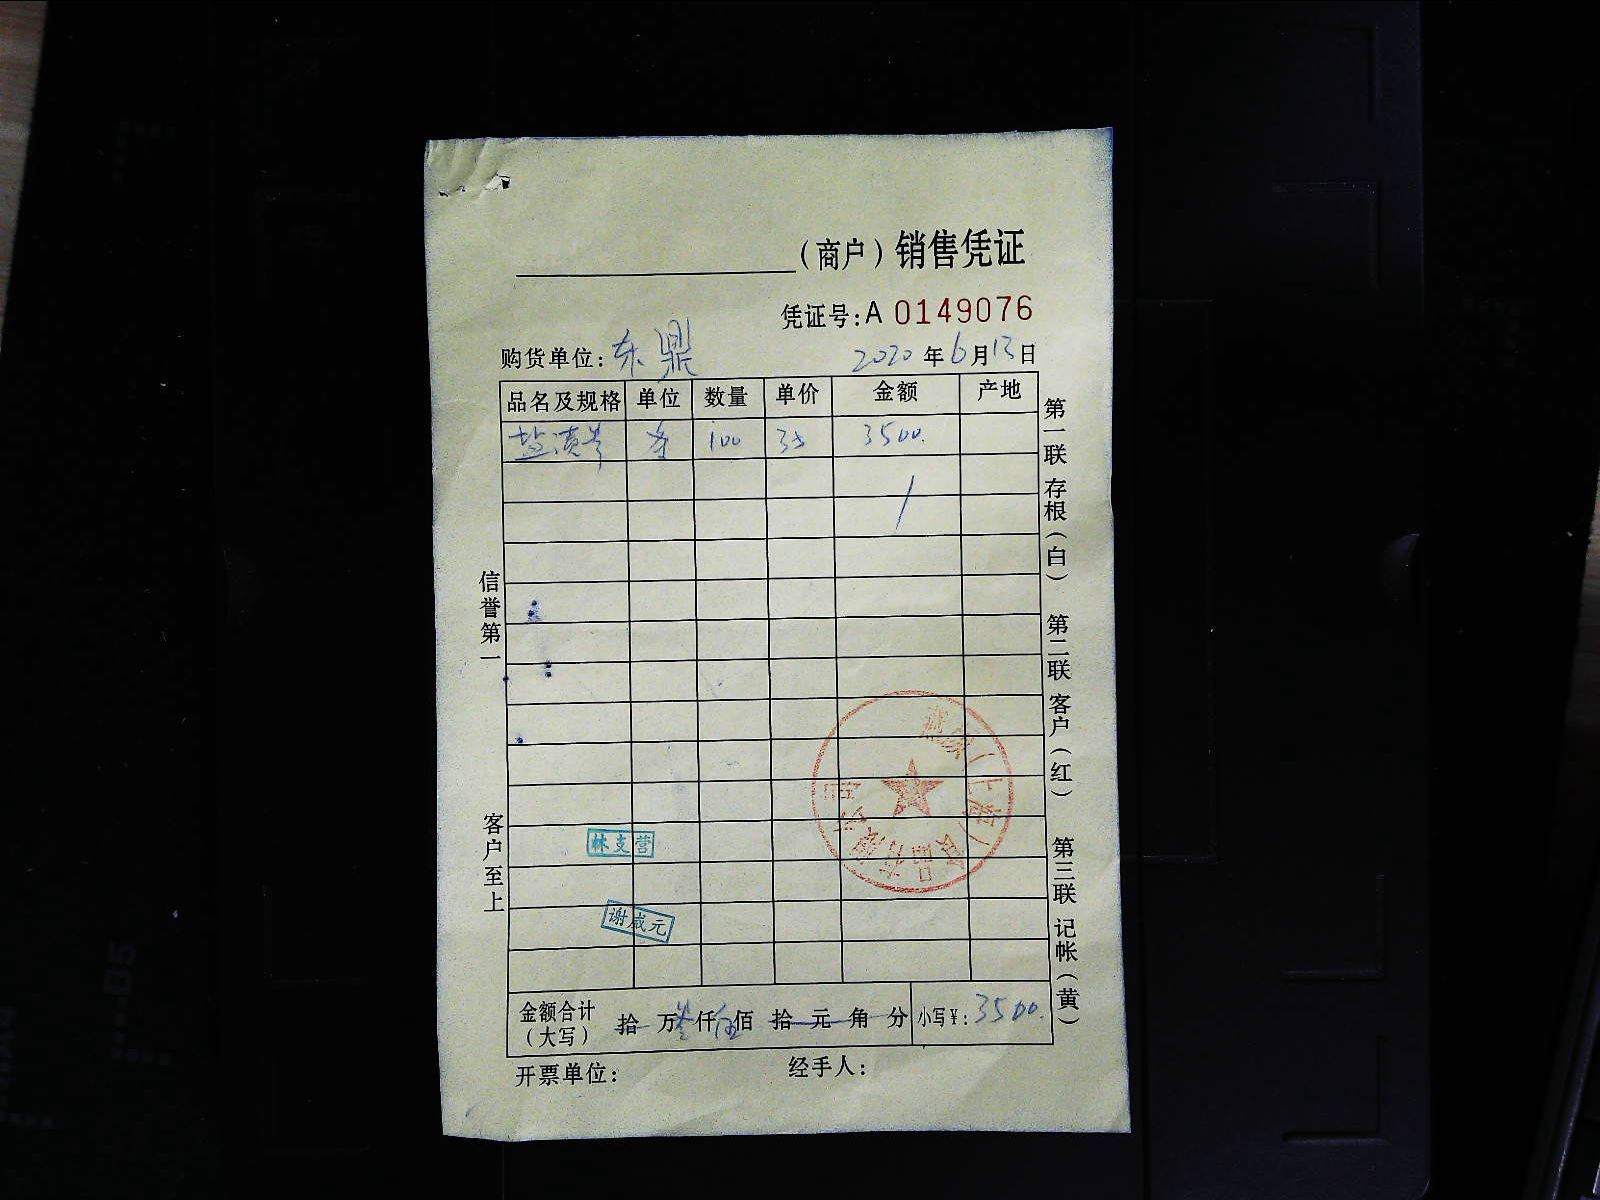 （商户）销售凭证
凭证号：A 0149076
购货单位：东鼎 2020年6月13日
品名及规格 单位 数量 单价 金额 产地
100 35 3500.
信誉第一
客户至上
第一联 存根（白） 第二联 客户（红） 第三联 记帐（黄）
（上海）
林支营
谢咸元
金额合计（大写） 拾 万 叁仟 伍佰 拾 元 角 分 小写¥：3500.
开票单位： 经手人：